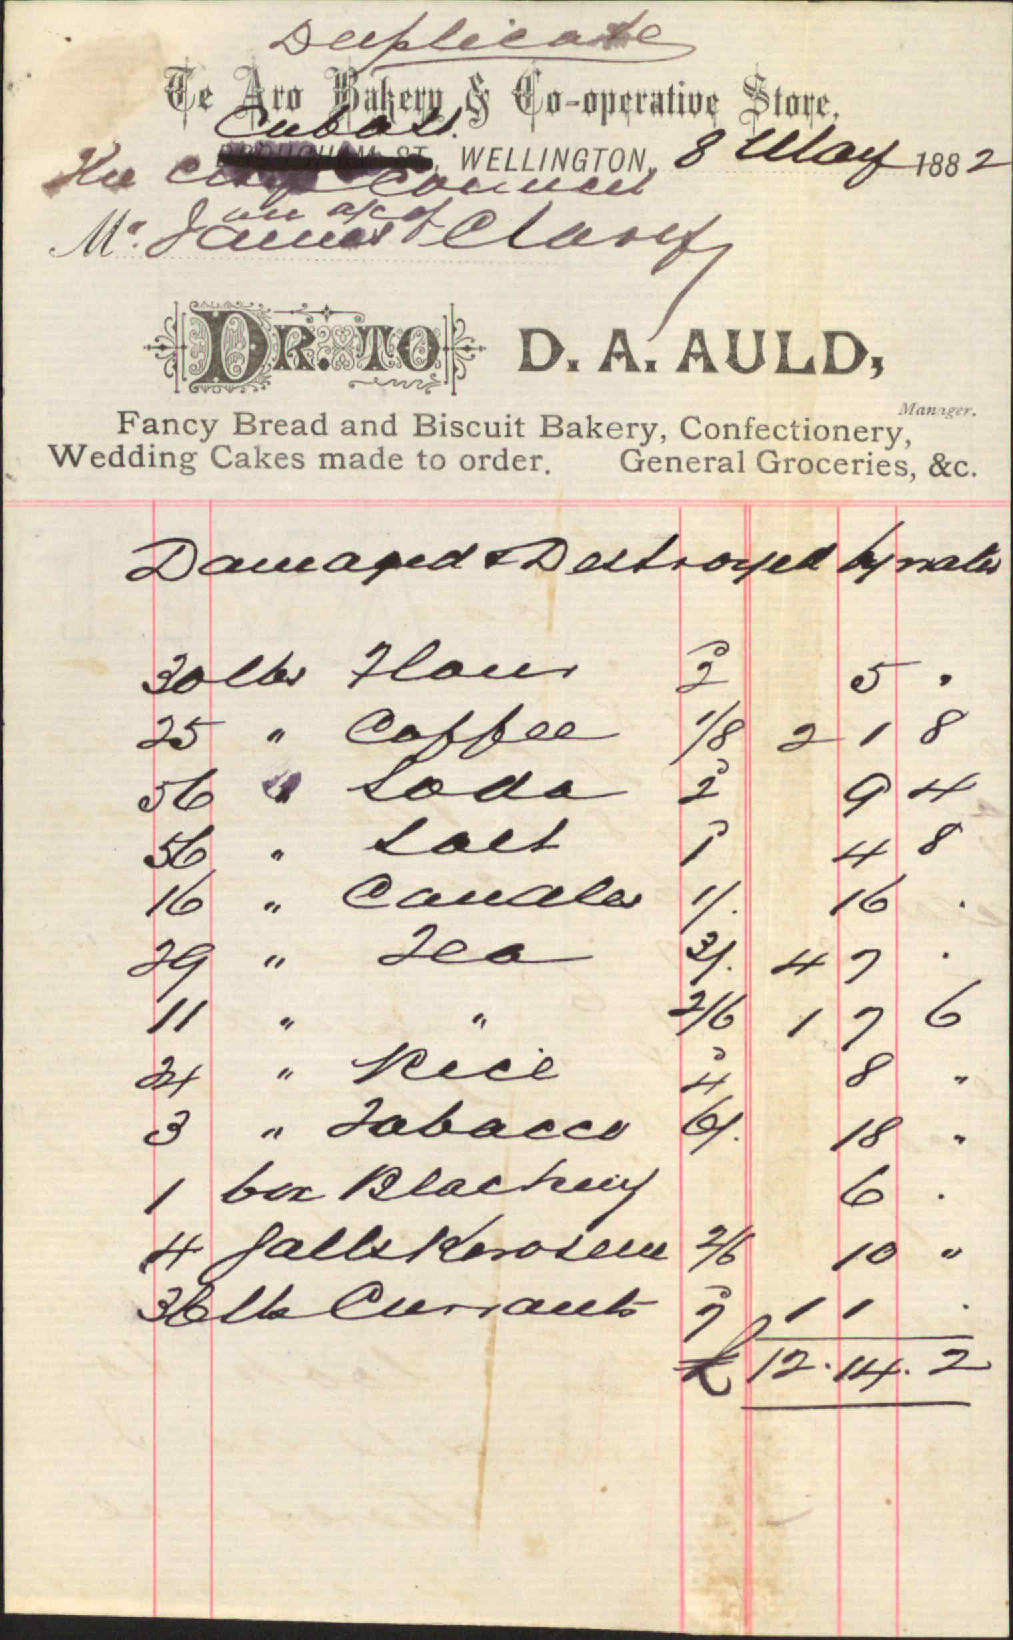 Duplicate
Te Aro Bakery & Co-operative Store.
Cuba St.
WELLINGTON, 8 May 1882
The City Council
on a/c of
Mr. James Clarey
DR. TO D. A. AULD,
Manager.
Fancy Bread and Biscuit Bakery, Confectionery,
Wedding Cakes made to order. General Groceries, &c.
Damaged & Destroyed by water
30 lbs Flour 2 5 .
25 " Coffee 1/8 2 1 8
56 " Soda 2 9 4
56 " Salt 1 4 8
16 " Candles 1/. 16 .
29 " Tea 3/. 4 7 .
11 " " 2/6 1 7 6
24 " Rice 4 8 "
3 " Tobacco 6/. 18 "
1 box Blacking 6 .
4 Galls Kerosene 2/6 10 "
36 lbs Currants 7 1 1 .
£ 12.14.2